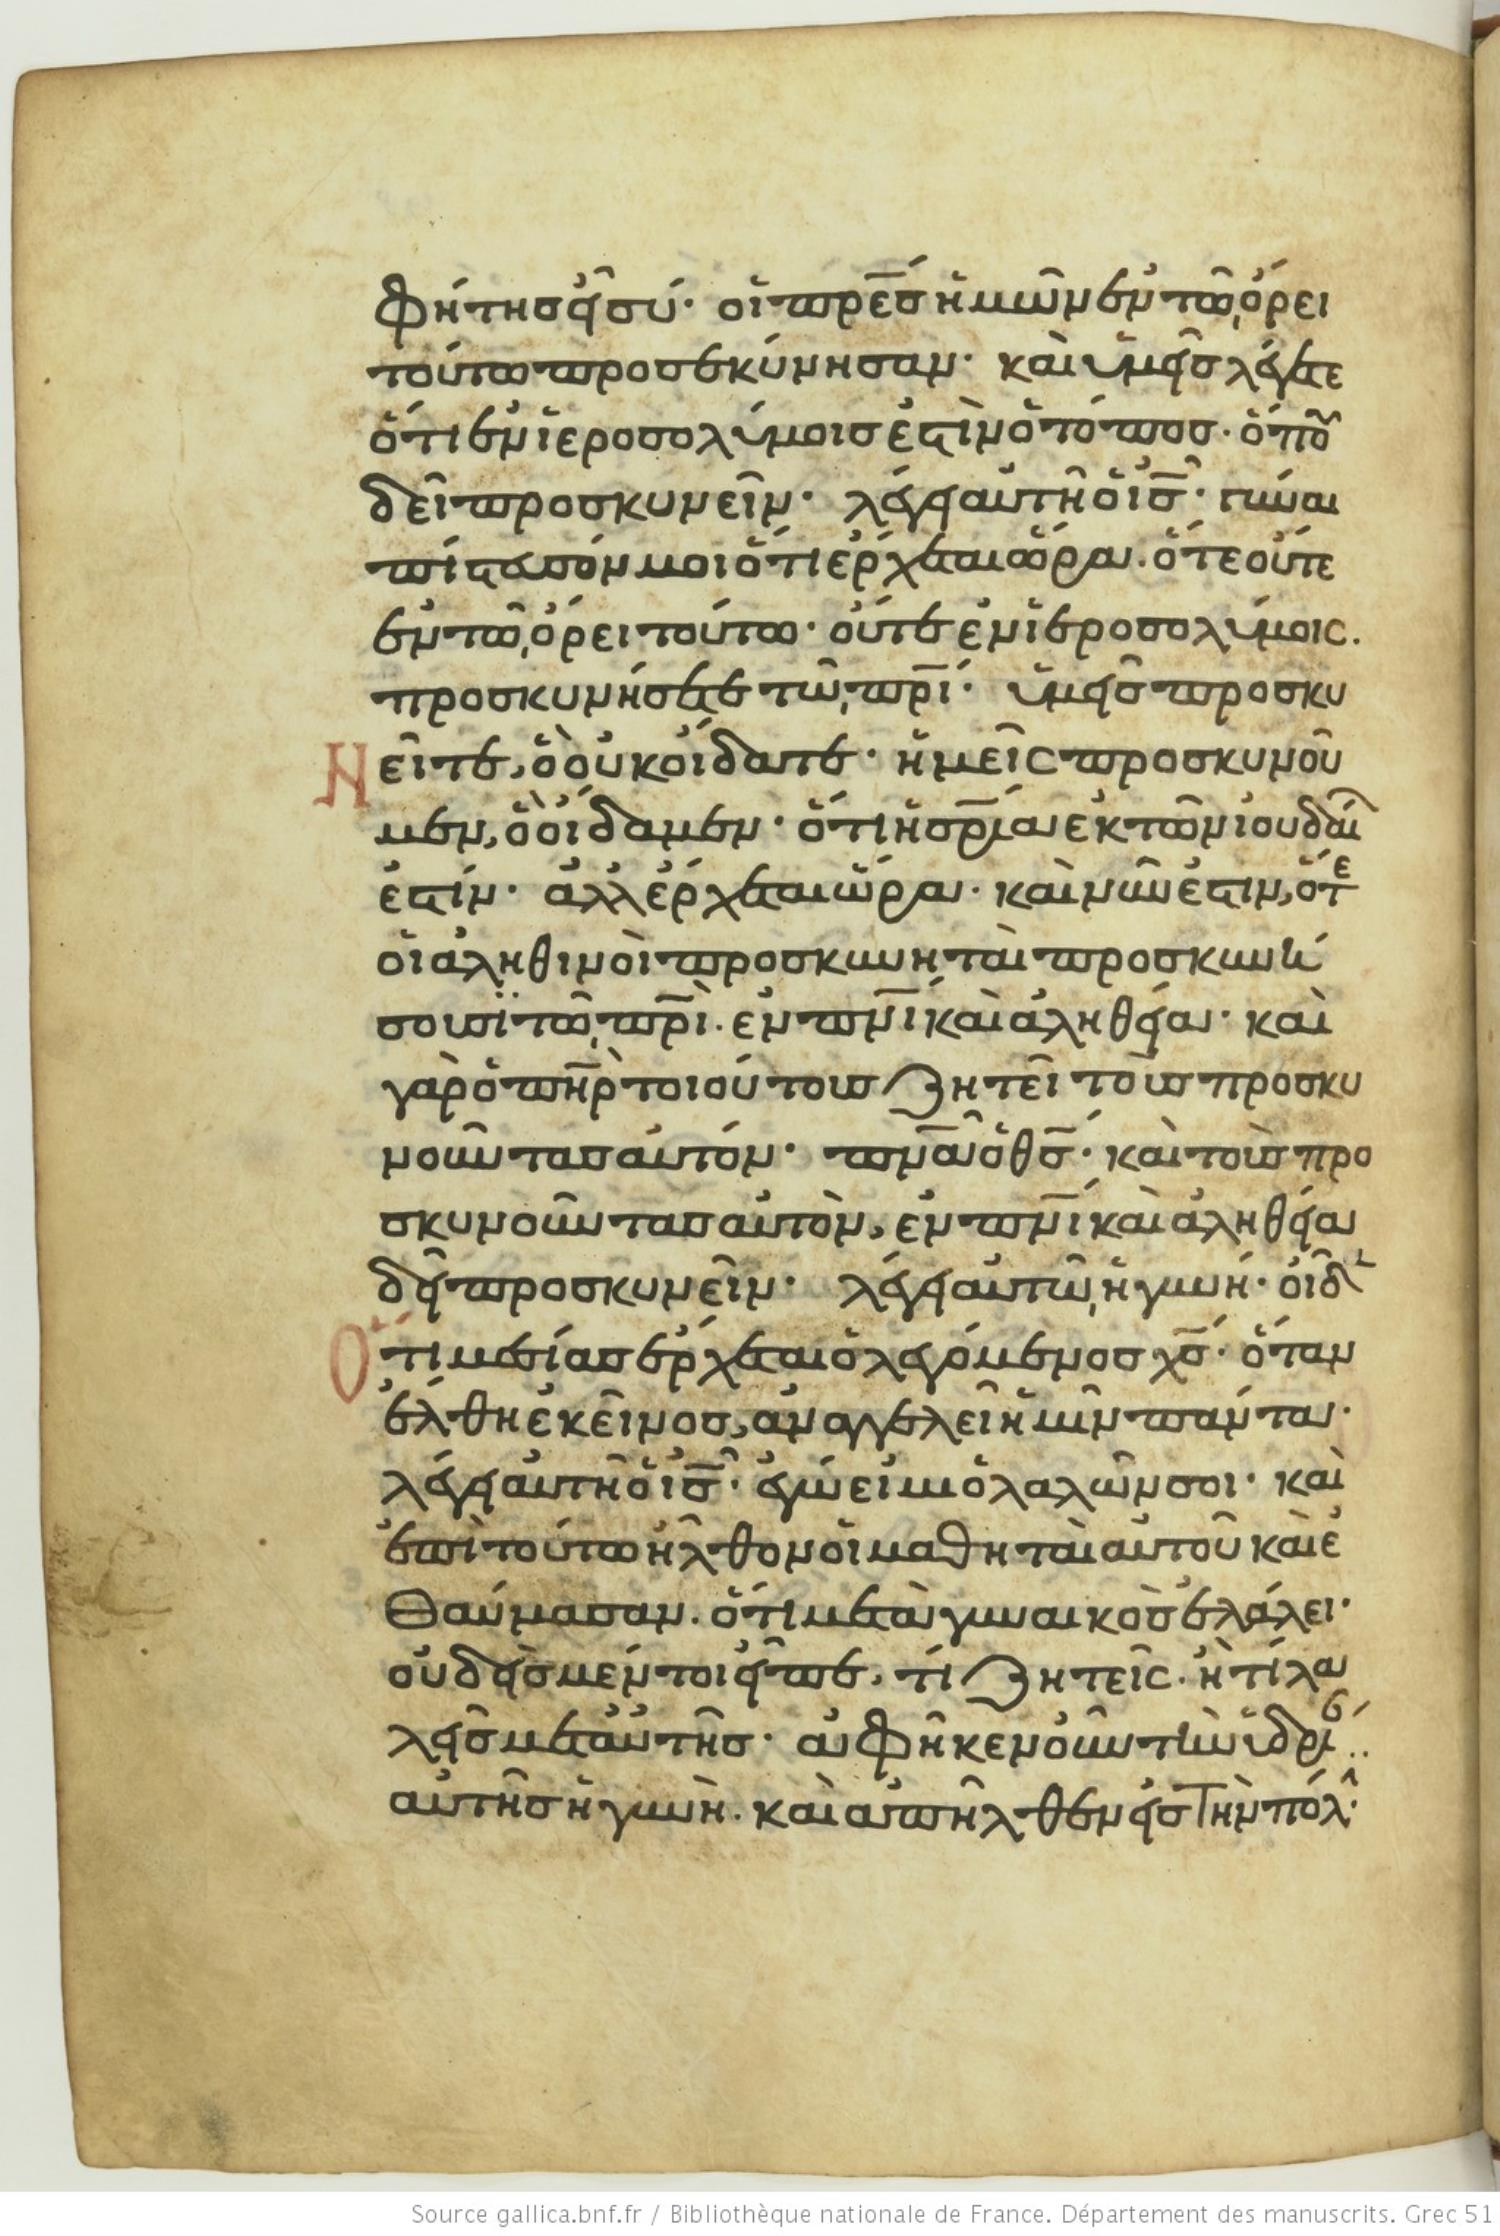 φήτης εἶ σύ· οἱ π̅ρ̅ε̅ς ἡμῶν ἐν τῶ ὄρει
τούτω προσεκύνησαν· καὶ ὑμεῖς λέγετε
ὅτι ἐν ἱεροσολύμοις ἐστὶν ὁ τόπος· ὅπου
δεῖ προσκυνεῖν· λέγει αὐτῆ ὁ ι̅ς̅· γύναι
πίστευσόν μοι ὅτι ἔρχεται ὥρα· ὅτε οὔτε
ἐν τῶ ὄρει τούτω· οὔτε ἐν ἱεροσολύμοις.
προσκυνήσετε τῶ π̅ρ̅ι̅· ὑμεῖς προσκυ
Νεῖτε, ὃ οὐκ οἴδατε· ἡμεῖς προσκυνοῦ
μεν, ὃ οἴδαμεν· ὅτι ἡ σ̅ρ̅ι̅α ἐκ τῶν ιουδαί
ἐστίν· ἀλλ ἔρχεται ὥρα· καὶ νῦν ἐστιν, ὅτε
οἱ ἀληθινοὶ προσκυνηταὶ προσκυνή
σουσϊ τῶ π̅ρ̅ι̅· ἐν π̅ν̅ι̅ καὶ ἀληθεία· καὶ
γὰρ ὁ π̅η̅ρ̅ τοιούτους ζητεῖ τοὺς προσκυ
νοῦντας αὐτόν· π̅ν̅α̅ ὁ θ̅ς̅· καὶ τοὺς προ
σκυνοῦντας αὐτὸν, ἐν π̅ν̅ι̅ καὶ ἀληθεία
δεῖ προσκυνεῖν· λέγει αὐτῶ ἡ γυνή· οἶδα
Ὅτι μεσίας ἔρχεται ὁ λεγόμενος χ̅ς̅· ὅταν
ἔλθη ἐκεῖνος, ἀναγγελεῖ ἡμῖν πάντα·
λέγει αὐτῆ ὁ ι̅ς̅· ἐγώ εἰμι ὁ λαλῶν σοι· καὶ
ἐπὶ τούτω ἦλθον οἱ μαθηταὶ αὐτοῦ καὶ ἐ
θαύμασαν· ὅτι μετὰ γυναικὸς ἐλάλει·
οὐδεὶς μέντοι εἶπε, τί ζητεῖς· ἢ τί λα
λεῖς μετ αὐτῆς· ἀφῆκεν οὖν τὴν ὑδρί
αὐτῆς ἡ γυνὴ· καὶ ἀπῆλθεν εἰς τὴν πόλ·